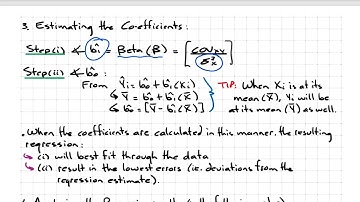 3. Estimating the Co-efficients:
Step(i) ∢ b̂₁ = Beta (β) = [COVxy / σ²x]
Step(ii) ∢ b̂₀:
From Ŷi = b̂₀ + b̂₁(Xi)
↳ Ȳ = b̂₀ + b̂₁(X̄)
↳ b̂₀ = [Ȳ - b̂₁(X̄)]
TIP: When Xi is at its
mean (X̄), Yi will be
at its mean (Ȳ) as well.
• When the coefficients are calculated in this manner, the resulting
regression:
↳ (i) will best fit through the data
↳ (ii) result in the lowest errors (ie. deviations from the
regression estimate).